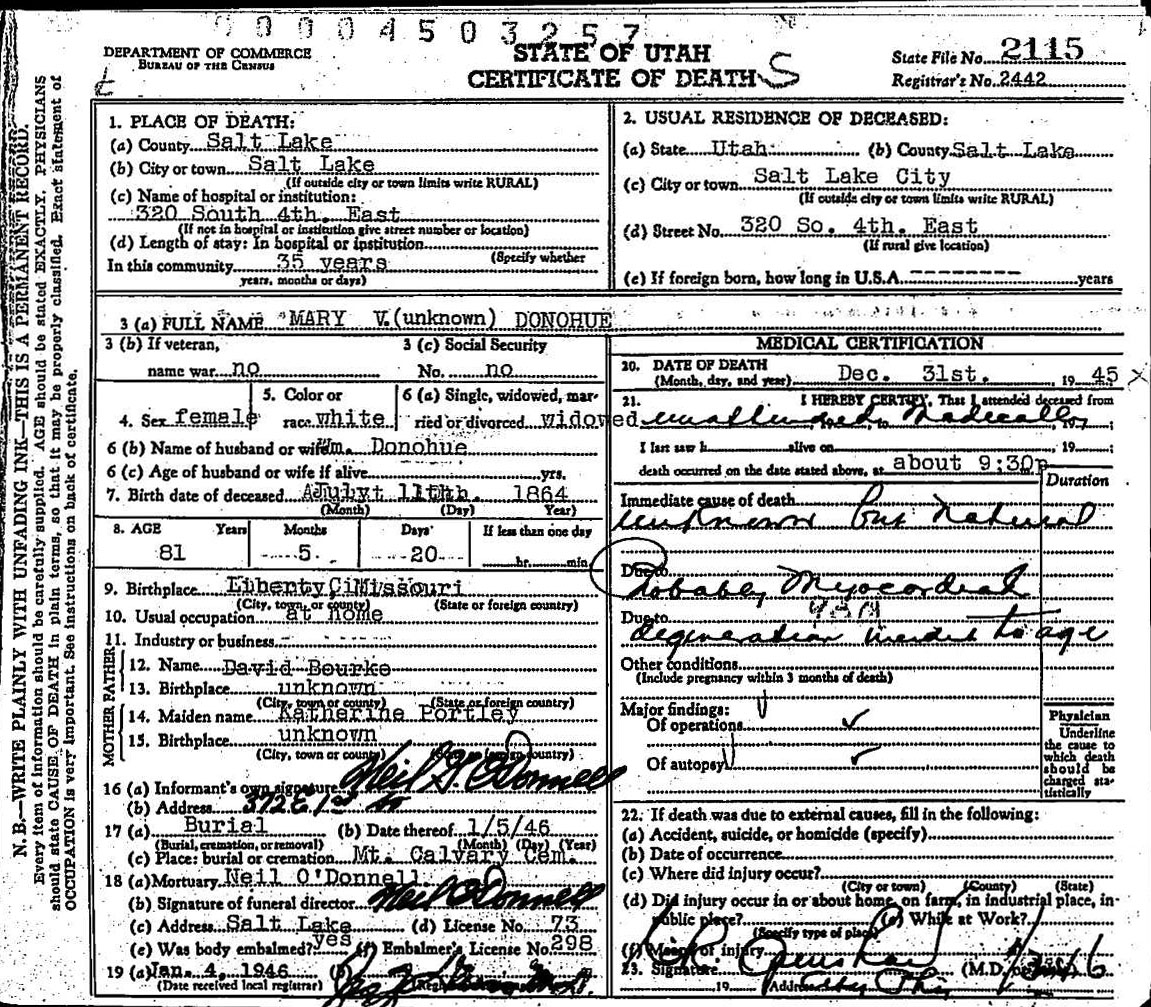 00004503257
DEPARTMENT OF COMMERCE
BUREAU OF THE CENSUS
STATE OF UTAH
CERTIFICATE OF DEATH S
State File No. 2115
Registrar's No. 2442
N. B.—WRITE PLAINLY WITH UNFADING INK—THIS IS A PERMANENT RECORD.
Every item of information should be carefully supplied. AGE should be stated EXACTLY. PHYSICIANS
should state CAUSE OF DEATH in plain terms, so that it may be properly classified. Exact statement of
OCCUPATION is very important. See instructions on back of certificate.
1. PLACE OF DEATH:
(a) County Salt Lake
(b) City or town Salt Lake
(If outside city or town limits write RURAL)
(c) Name of hospital or institution:
320 South 4th. East
(If not in hospital or institution give street number or location)
(d) Length of stay: In hospital or institution
(Specify whether
In this community 35 years
years, months or days)
2. USUAL RESIDENCE OF DECEASED:
(a) State Utah (b) County Salt Lake
(c) City or town Salt Lake City
(If outside city or town limits write RURAL)
(d) Street No. 320 So. 4th. East
(If rural give location)
(e) If foreign born, how long in U.S.A. --------- years
3 (a) FULL NAME MARY V.(unknown) DONOHUE
3 (b) If veteran, 3 (c) Social Security
name war no No. no
5. Color or 6 (a) Single, widowed, mar-
4. Sex female race white ried or divorced widowed
6 (b) Name of husband or wife Wm. Donohue
6 (c) Age of husband or wife if alive yrs.
7. Birth date of deceased July 11th. 1864
(Month) (Day) Year)
8. AGE Years Months Days If less than one day
81 5 20 hr. min.
9. Birthplace Liberty Missouri
(City, town, or county) (State or foreign country)
10. Usual occupation at home
11. Industry or business
FATHER
12. Name David Bourke
13. Birthplace unknown
(City, town or county) (State or foreign country)
MOTHER
14. Maiden name Katherine Portley
15. Birthplace unknown
(City, town or county) (State or foreign country)
16 (a) Informant's own signature Neil G. O'Donnell
(b) Address 372 E 1st So
17 (a) Burial (b) Date thereof 1/5/46
(Burial, cremation, or removal) (Month) (Day) (Year)
(c) Place: burial or cremation Mt. Calvary Cem.
18 (a) Mortuary Neil O'Donnell
(b) Signature of funeral director Neil O'Donnell
(c) Address Salt Lake (d) License No. 73
(e) Was body embalmed? yes (f) Embalmer's License No. 298
19 (a) Jan. 4, 1946 (b)
(Date received local registrar)
MEDICAL CERTIFICATION
20. DATE OF DEATH
(Month, day, and year) Dec. 31st. , 19 45 X
21. I HEREBY CERTIFY, That I attended deceased from
unattended medically
I last saw h alive on , 19 ;
death occurred on the date stated above, at about 9:30p
Duration
Immediate cause of death
unknown but natural
Due to
Probably Myocordial
Due to
degeneration incident to age
Other conditions
(Include pregnancy within 3 months of death)
Major findings:
Of operations
Of autopsy
Physician
Underline
the cause to
which death
should be
charged sta-
tistically
22. If death was due to external causes, fill in the following:
(a) Accident, suicide, or homicide (specify)
(b) Date of occurrence
(c) Where did injury occur?
(City or town) (County) (State)
(d) Did injury occur in or about home, on farm, in industrial place, in-
public place? (e) While at Work?
(Specify type of place)
(f) Means of injury
23. Signature (M.D.
19 Address